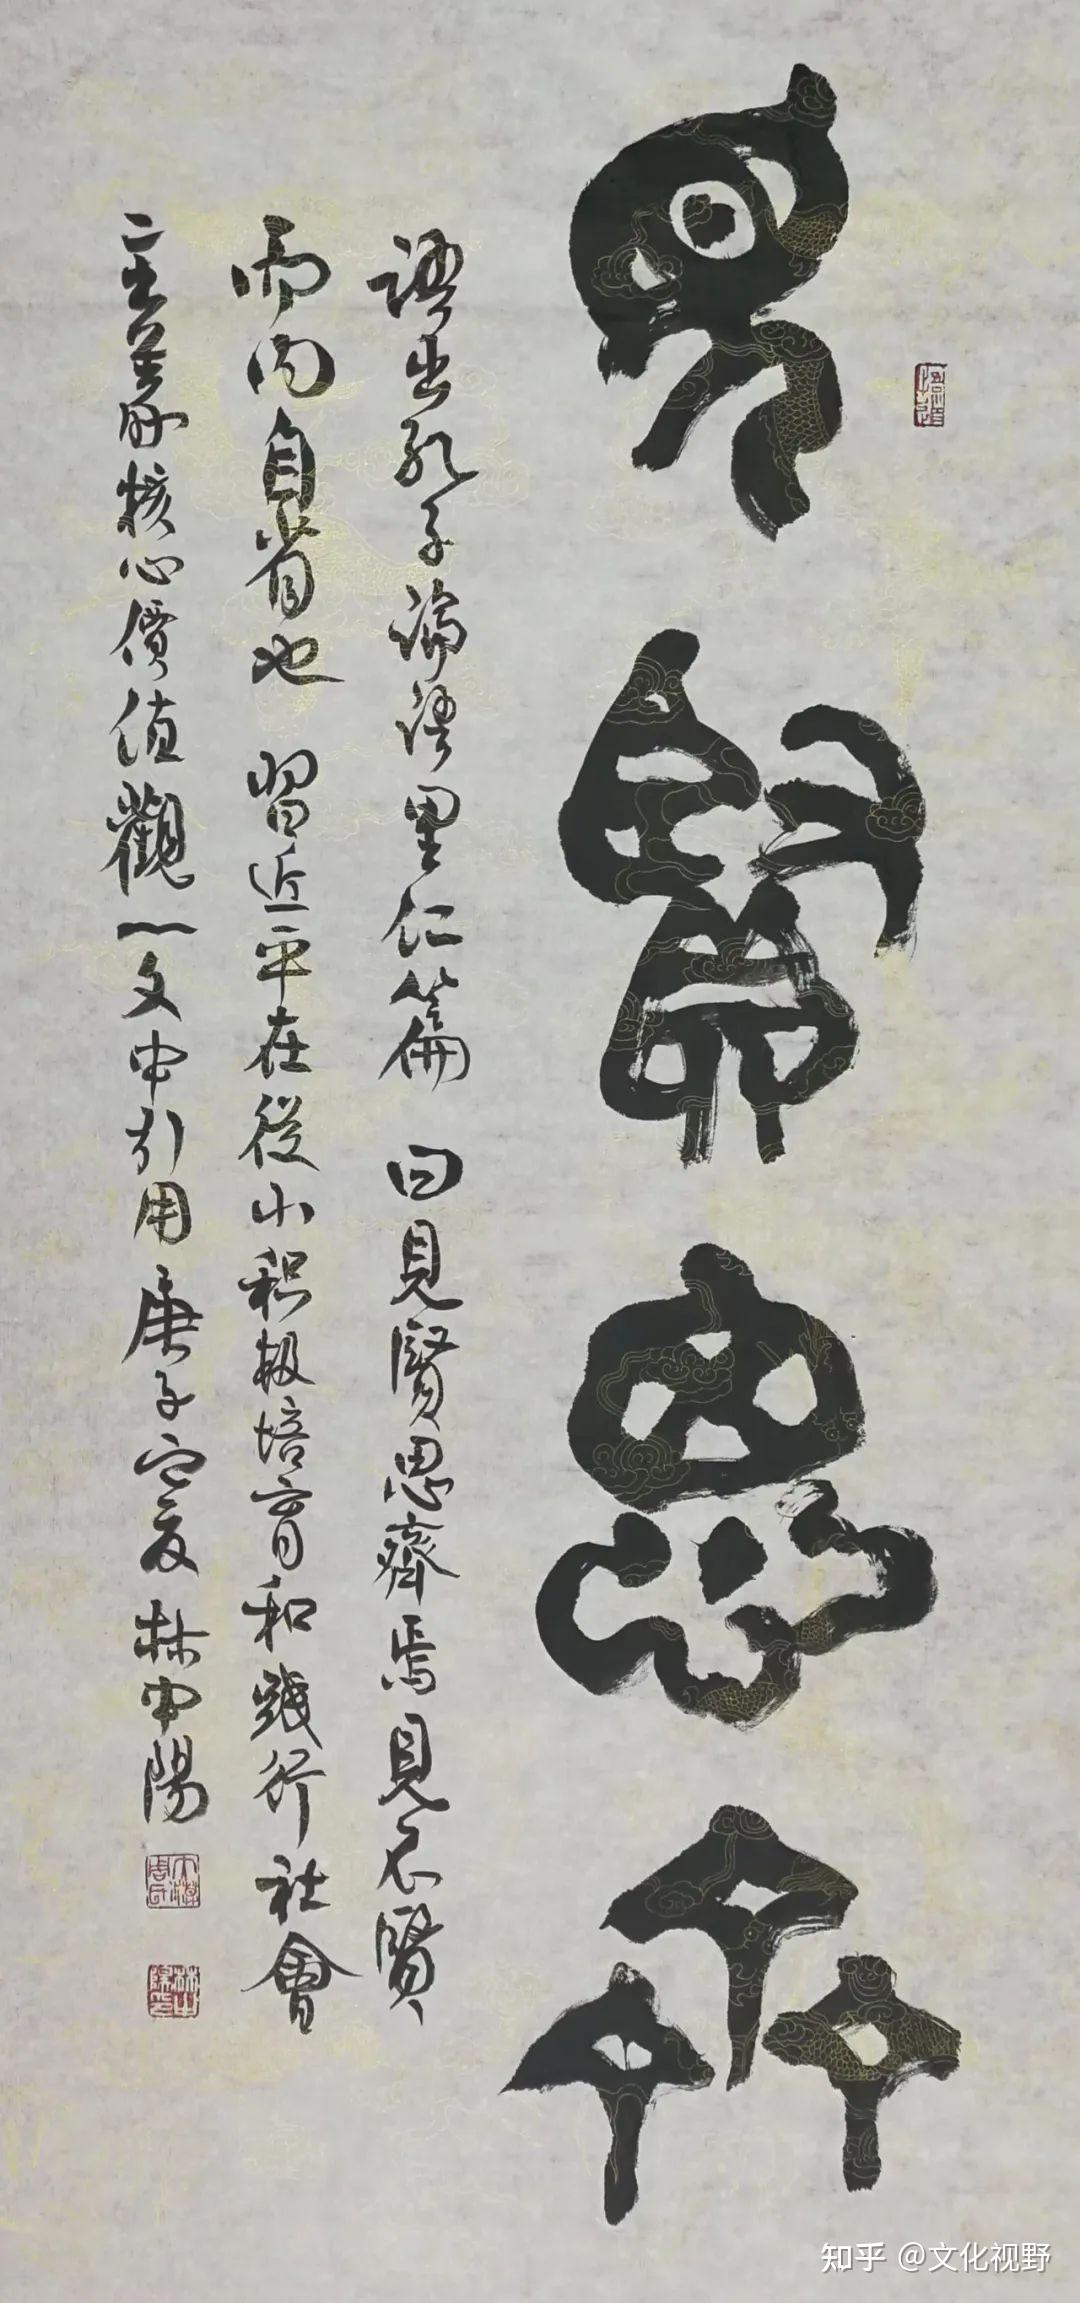 見賢思齊
語出孔子論語里仁篇 曰見賢思齊焉見不賢
而内自省也 習近平在從小积极培育和践行社會
主義核心價值觀一文中引用庚子之夏林中陽
知乎 @文化视野